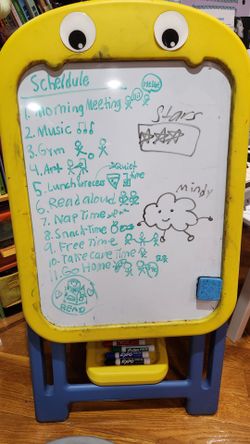 Scheldule
Hello
1. Morning Meeting
Stars
2. Music
3. Gym
4. Art
Quiet
5. Lunch/recess Time
6. Read aloud
Mindy
7. Nap Time
8. Snack Time
9. Free Time
10. Take care Time
11. Go Home
READ
EXPO